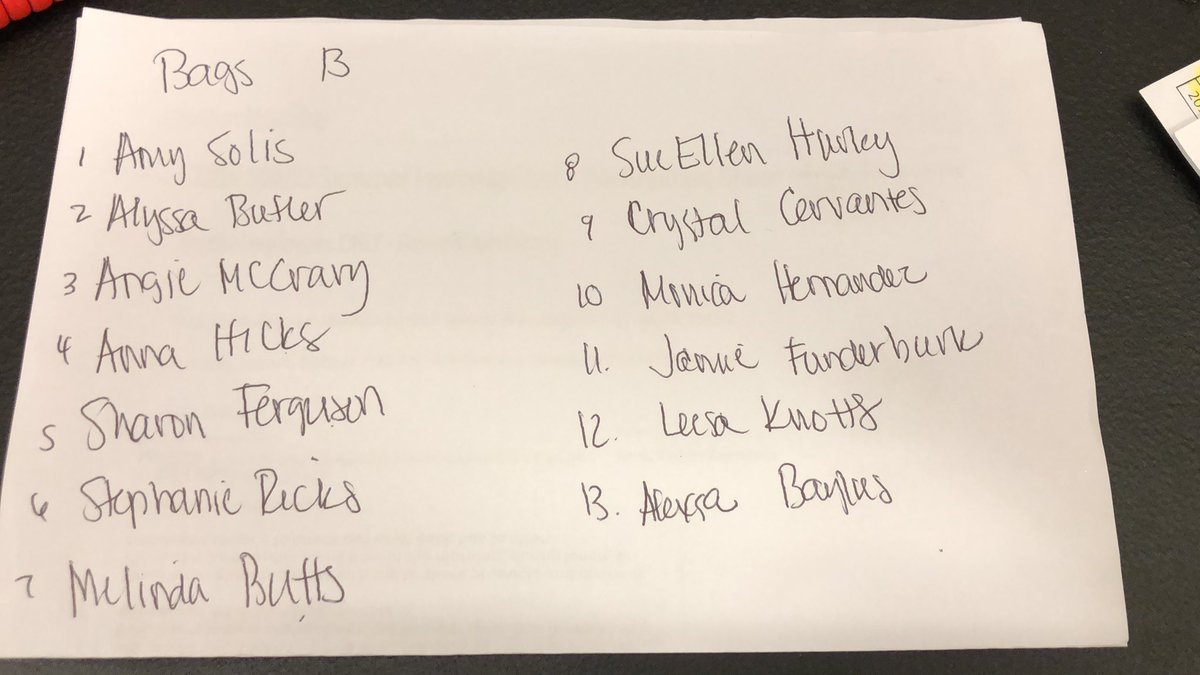 Bags 13
1 Amy Solis
2 Alyssa Butler
3 Angie McCrary
4 Anna Hicks
5 Sharon Ferguson
6 Stephanie Ricks
7 Melinda Butts
8 SueEllen Hurley
9 Crystal Cervantes
10 Monica Hernandez
11. Jamie Funderburk
12. Leesa Knotts
13. Alexsa